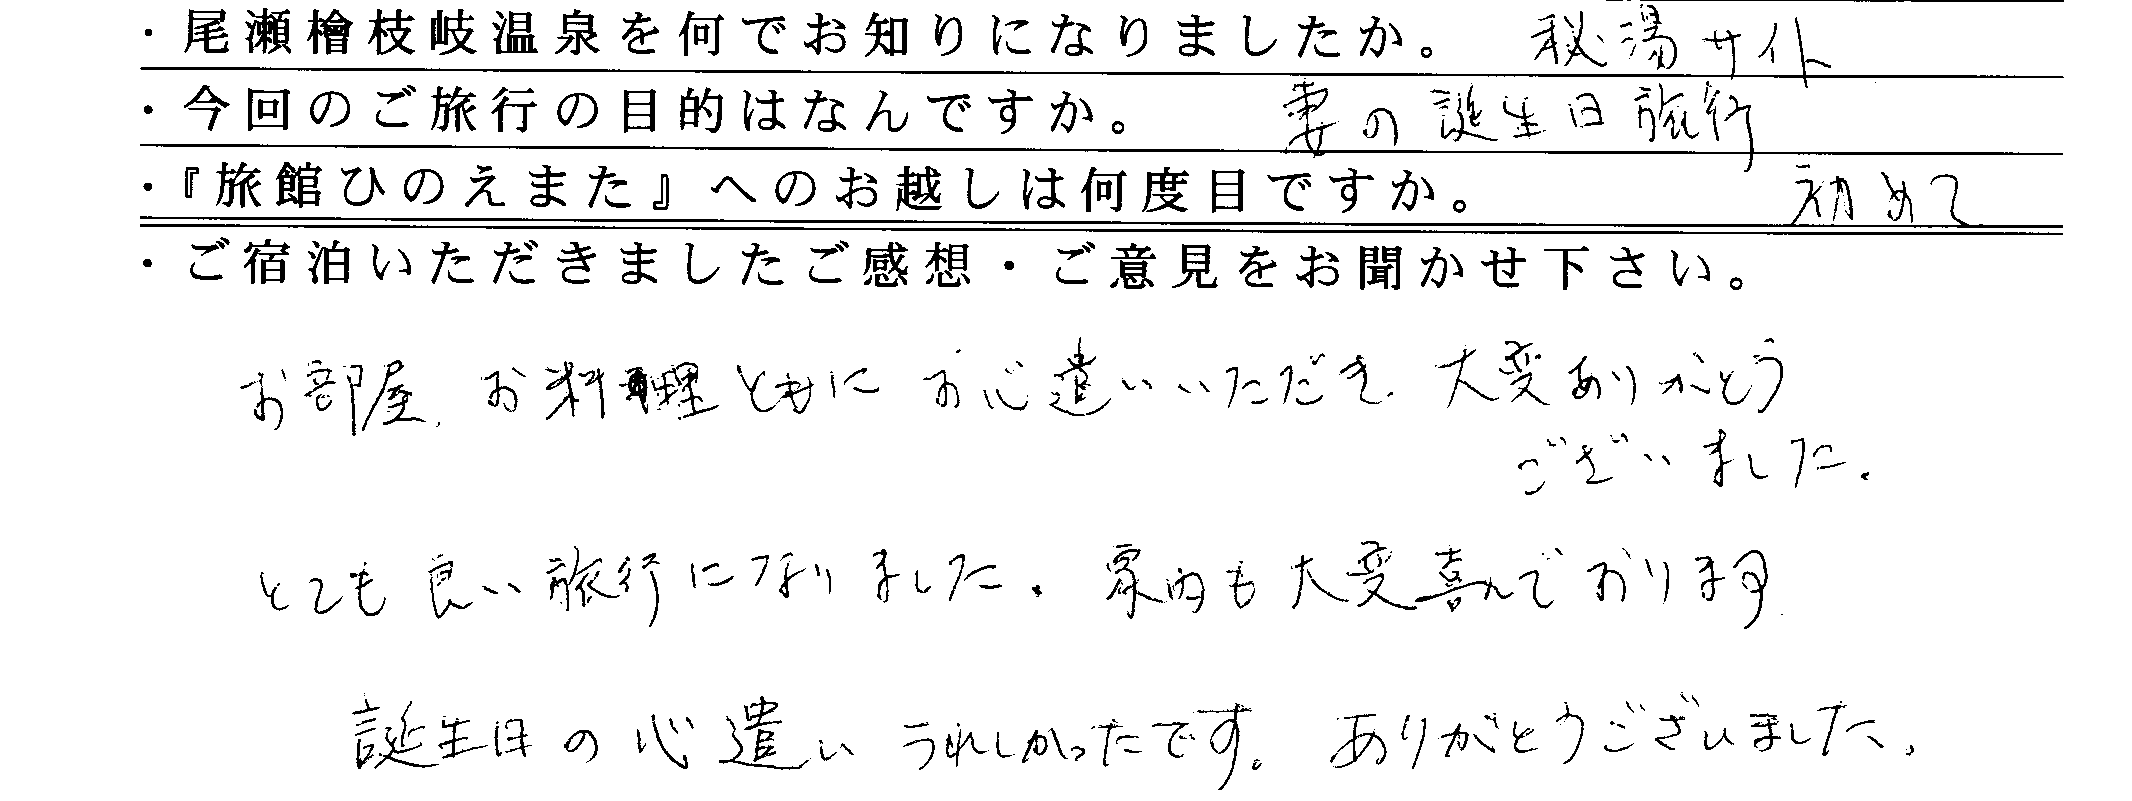 ・尾瀬檜枝岐温泉を何でお知りになりましたか。 秘湯サイト
・今回のご旅行の目的はなんですか。 妻の誕生日旅行
・『旅館ひのえまた』へのお越しは何度目ですか。 初めて
・ご宿泊いただきましたご感想・ご意見をお聞かせ下さい。
お部屋、お料理ともにお心遣いいただき、大変ありがとう
ございました。
とても良い旅行になりました。家内も大変喜んでおります
誕生日の心遣いうれしかったです。ありがとうございました。